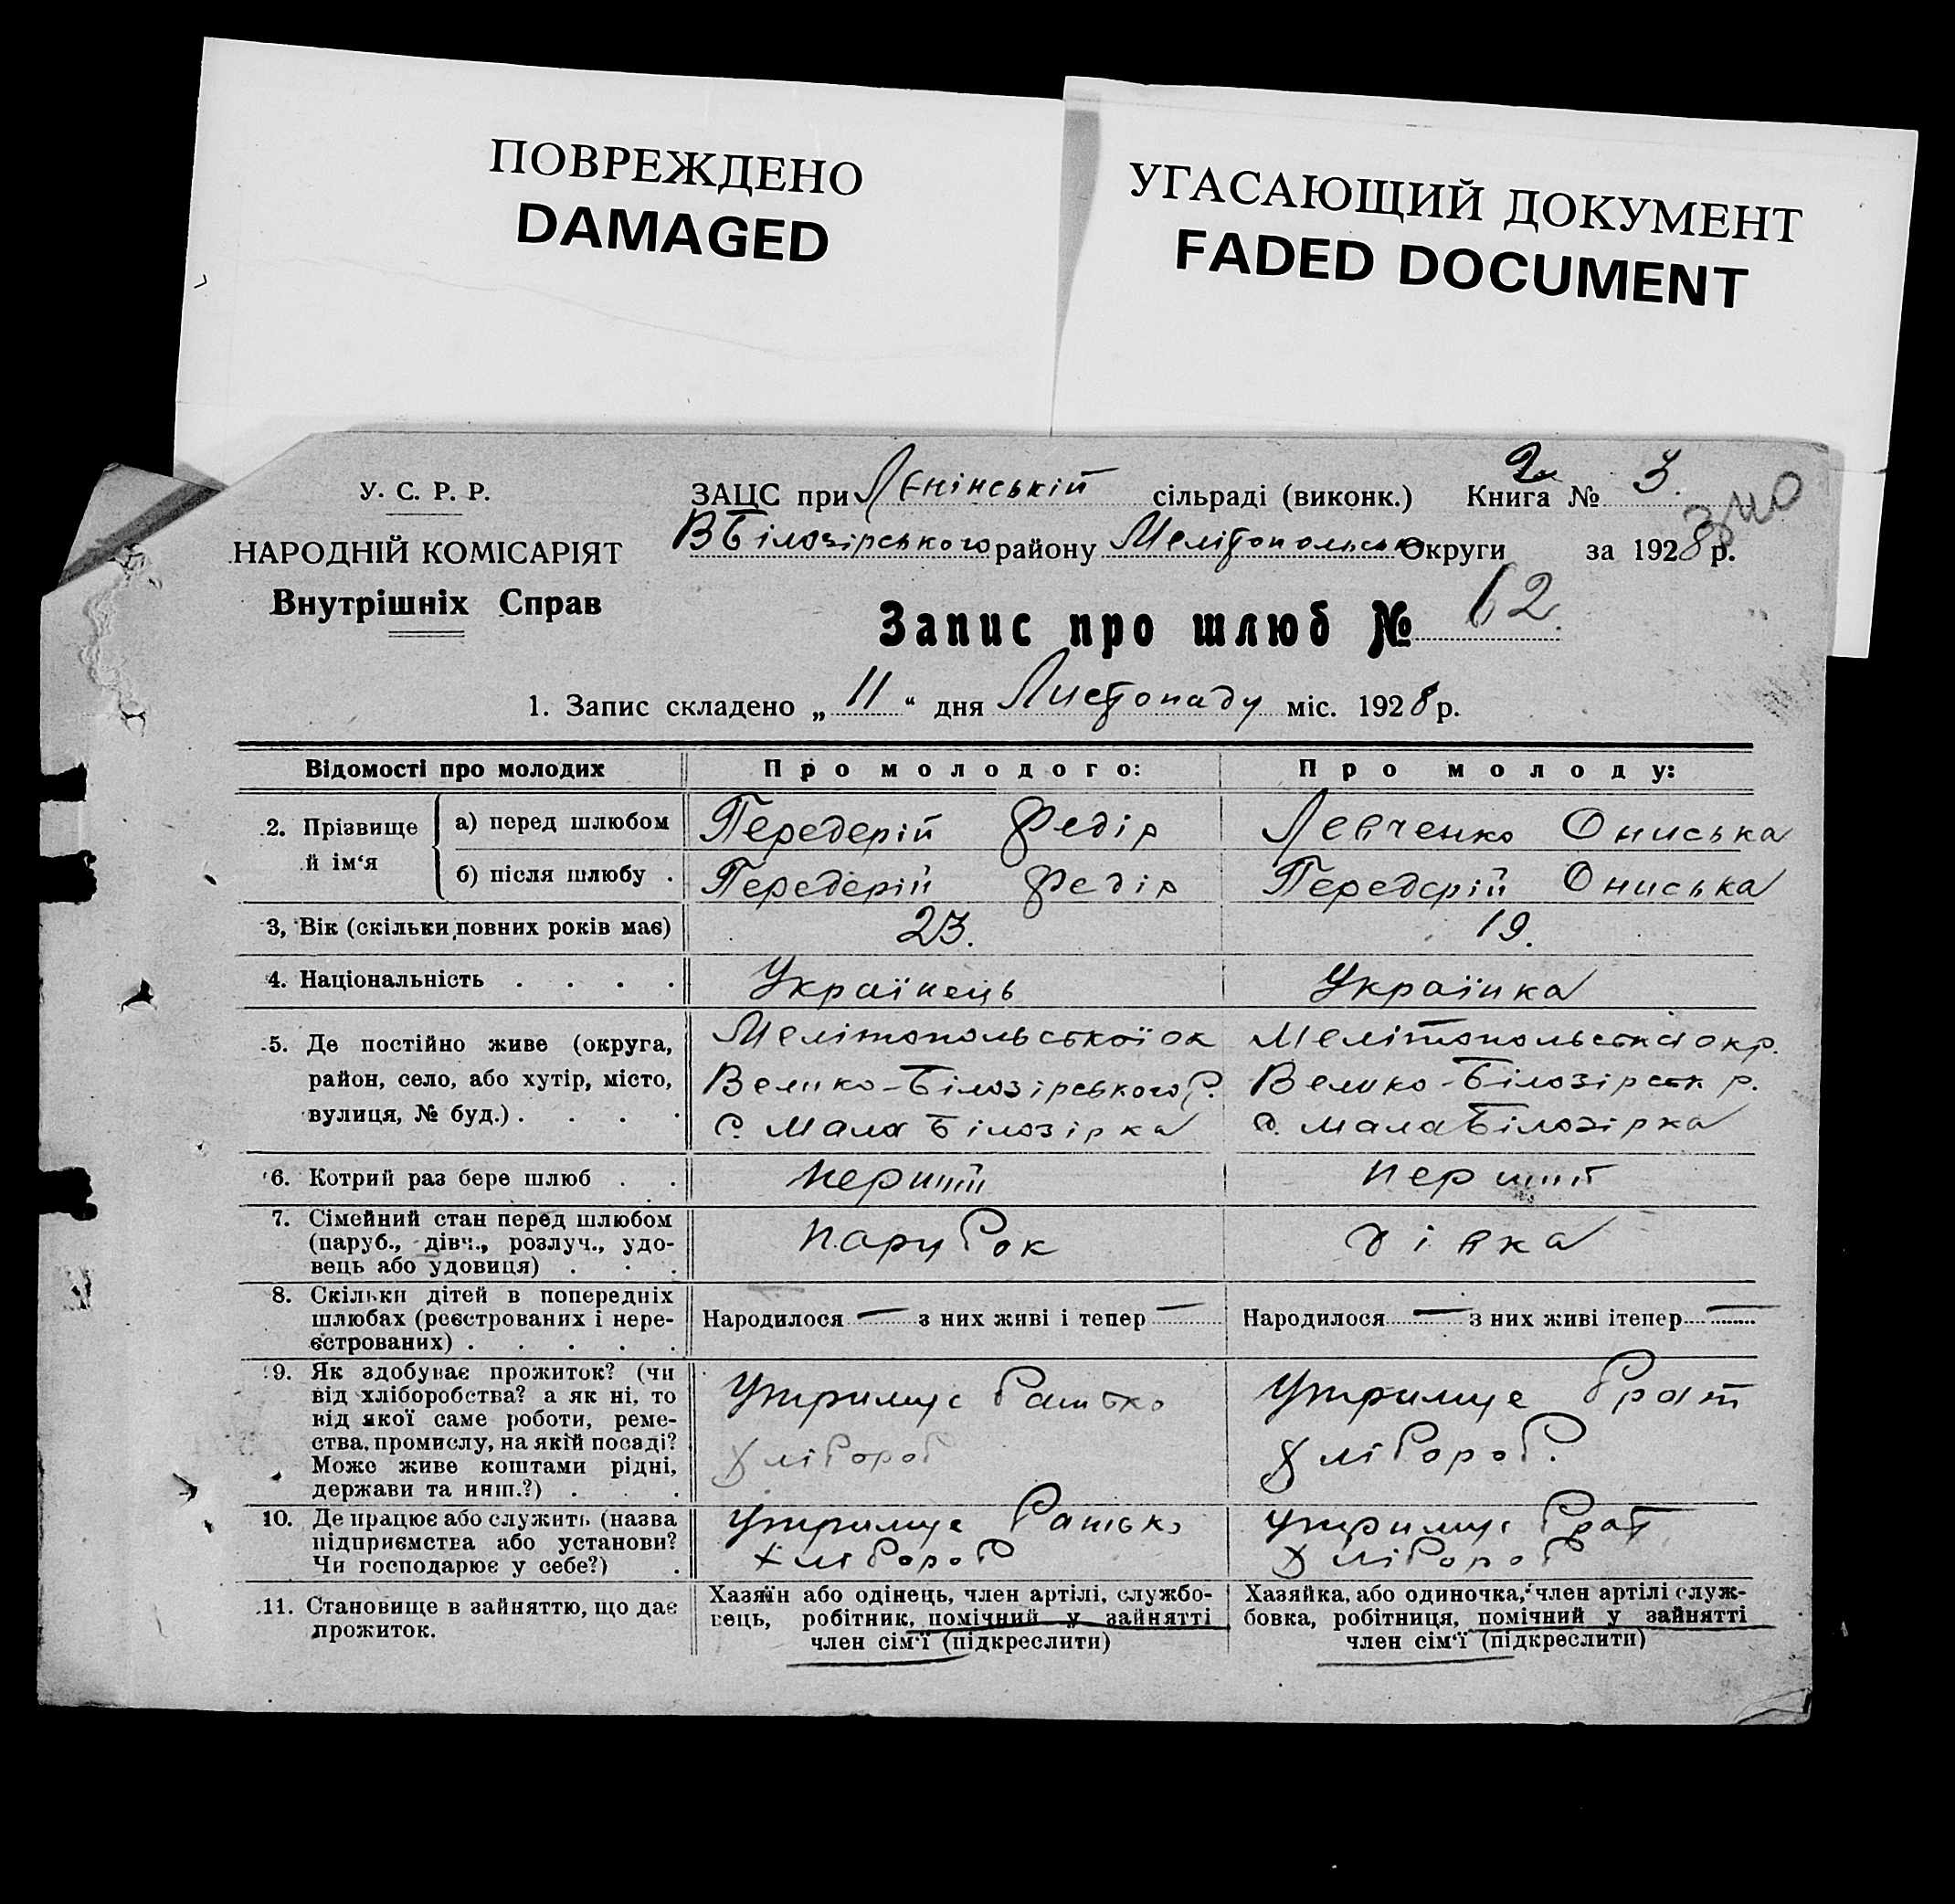 ПОВРЕЖДЕНО
DAMAGED
УГАСАЮЩИЙ ДОКУМЕНТ
FADED DOCUMENT
У. С. Р. Р.
НАРОДНІЙ КОМІСАРІЯТ
Внутрішніх Справ
ЗАЦС при Лєнінській сільраді (виконк.) Книга № 3.
2
340
В Білозірського району Мелітопольськ Округи за 1928 р.
Запис про шлюб № 62.
1. Запис складено „ 11 “ дня Листопаду міс. 1928 р.
Відомості про молодих Про молодого: Про молоду:
2. Прізвище й ім‘я
а) перед шлюбом Передерій Федір Левченко Ониська
б) після шлюбу . Передерій Федір Передерій Ониська
3, Вік (скільки повних років має) 23. 19.
4. Національність . . . . Українець Українка
5. Де постійно живе (округа,
район, село, або хутір, місто,
вулиця, № буд.) . . . .
Мелітопольської ок
Велико-Білозірського Р.
с. Мала Білозірка
окр.
Велико-Білозірськ р.
с. Мала Білозірка
6. Котрий раз бере шлюб . . перший перший
7. Сімейний стан перед шлюбом
(паруб., дівч., розлуч., удо-
вець або удовиця) . . .
парубок
дівка
8. Скільки дітей в попередніх
шлюбах (реєстрованих і нере-
єстрованих) . . . . .
Народилося — з них живі і тепер —
Народилося — з них живі ітепер —
9. Як здобуває прожиток? (чи
від хліборобства? а як ні, то
від якої саме роботи, реме-
ства, промислу, на якій посаді?
Може живе коштами рідні,
держави та инш.?) . . .
Утримує батько
хлібороб
Утримує брат
хлібороб.
10. Де працює або служить (назва
підприємства або установи?
Чи господарює у себе?) .
утримує батько
хлібороб
утримує брат
хлібороб
11. Становище в зайняттю, що дає
прожиток.
Хазяїн або одінець, член артілі, службо-
вець, робітник, помічний у зайнятті
член сім‘ї (підкреслити)
Хазяйка, або одиночка, член артілі служ-
бовка, робітниця, помічний у зайнятті
член сім‘ї (підкреслити)